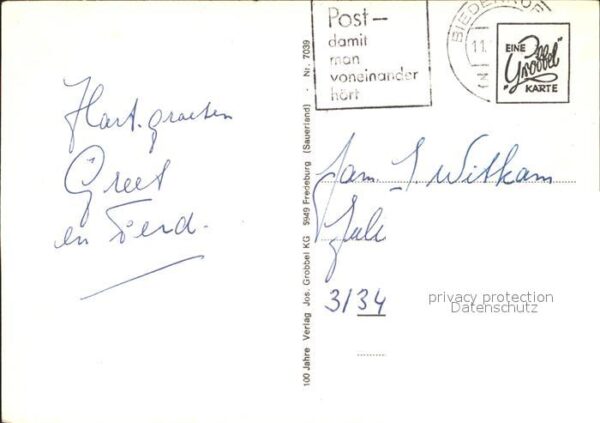 Post—
damit
man
voneinander
hört
BIEDENKOPF
11.
EINE
Grobbel
KARTE
Hart. groeten
Greet
en Ferd.
100 Jahre Verlag Jos. Grobbel KG 5949 Fredeburg (Sauerland) - Nr. 7039
Fam. J. Witkam
3134
privacy protection
Datenschutz